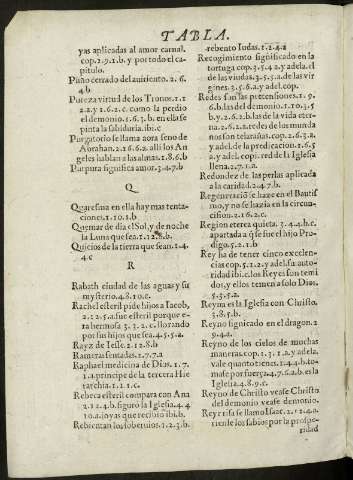 TABLA.
yas aplicadas al amor carnal.
cop. 2.9.1.b. y por todo el ca-
pitulo.
Puño cerrado del auiriento. 2.6.
4.b
Pureza virtud de los Tronos. 1.1
2.2. y 1.6.2.c. como la perdio
el demonio. 1.6.3.b. en ella se
pinta la sabiduria. ibi.c
Purgatorio se llama aora seno de
Abrahan. 2.1.6 6.2. alli los An
geles hablan a las almas. 1.8.6.b
Purpura significa amor. 3.4.7.b
Q
Quaresma en ella hay mas tenta-
ciones. 1.10.1.b
Quemar de dia el Sol, y de noche
la Luna que sea. 1.12.8.b.
Quicios de la tierra que sean. 1.4.
4.c
R
Rabath ciudad de las aguas y su
mysterio. 4.8.10.c.
Rachel esteril pide hijos a Iacob,
2.12.5.a. fue esteril porque e-
ra hermosa 3.3.2.c. llorando
por sus hijos que sea. 4.5.5.2.
Rayz de Iesse. 2.12.8.b
Rameras sentadas. 2.7.7.2
Raphael medicina de Dios. 1.7.
1.a. principe de la tercera Hie
rarchia. 1.2 1.c.
Rebeca esteril compara con Ana
2.12 4.b. figurò la Iglesia. 4.4
10.a. joyas que recibio ibi.b.
Rebientan los soberuios. 1.2.3.b.
rebento Iudas. 1.2.4.a
Recogimiento significado en la
tortuga cop. 3.5.4.2. y adela. el
de las viudas. 3.5.5.a. de las vir
gines. 3.5 6.2. y adel. cop.
Redes son las pretensiones. 1.9.
6.b. las del demonio. 1.10.3.5
b. y 2.6.2.b. las de la vida eter-
na. 2.6.2.2. redes de los munda
nos son telarañas. cop. 2.6.3.2.
y adel. de la predicacion. 1.6.5
a. y adel. copi. red de la Iglesia
llena. 2.7.1.a.
Redondez de las perlas aplicada
a la caridad. 2.4.7.b.
Regeneraciõ se haze en el Bautis
mo, y no se hazia en la circun-
cision. 2.16.2.c.
Region eterea quieta. 3.4.4.b.c.
apartada a q̃ se fue el hijo Pro
digo. 5.2.1.b
Rey ha de tener cinco excelen-
cias cop. 5.1.2. y adel. su auto-
ridad ibi.c. los Reyes son temi
dos, y ellos temen a solo Dios.
5.5.5.a.
Reyna es la Iglesia con Christo.
3.8.5.b.
Reyno significado en el dragon. 2
9.4.a.
Reyno de los cielos de muchas
maneras. cop. 1.3 1.2. y adela.
vale quanto tienes. 1.4.4.b. to-
mase por fuerça. 4.7.6.a.b. es la
Iglesia. 4.8.9.c.
Reyno de Christo vease Christo
del demonio vease demonio.
Rey risa se llamo Isaac. 2.12.4.a.
tienle los sabios por la prospe-
ridad